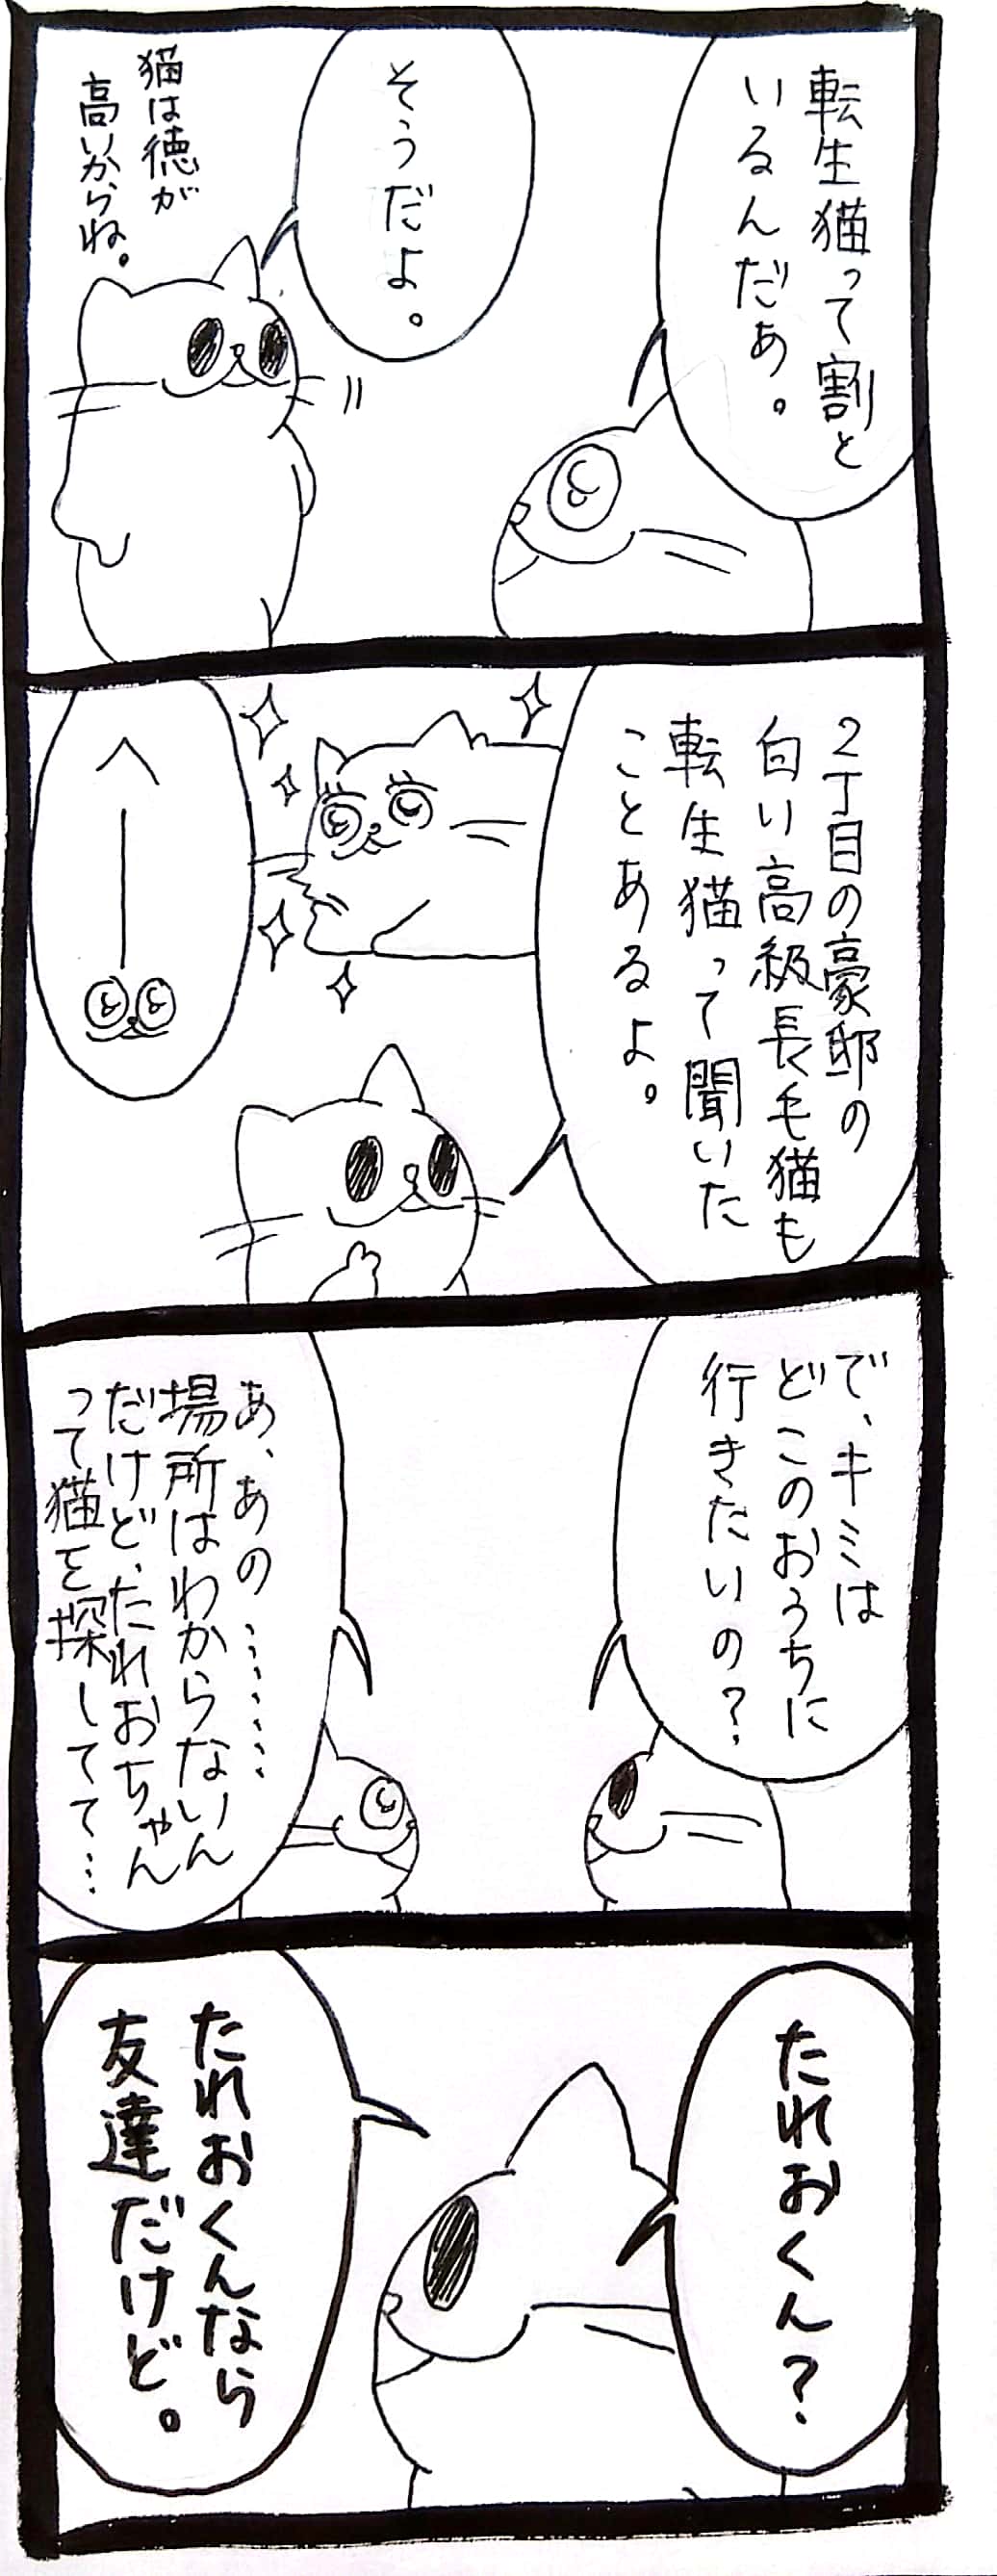 転生猫って割と
いるんだぁ。
そうだよ。
猫は徳が
高いからね。
2丁目の豪邸の
白い高級長毛猫も
転生猫って聞いた
ことあるよ。
へー
で、キミは
どこのおうちに
行きたいの?
あ、あの……
場所はわからないん
だけど、たれおちゃん
って猫を探してて…
たれおくん?
たれおくんなら
友達だけど。